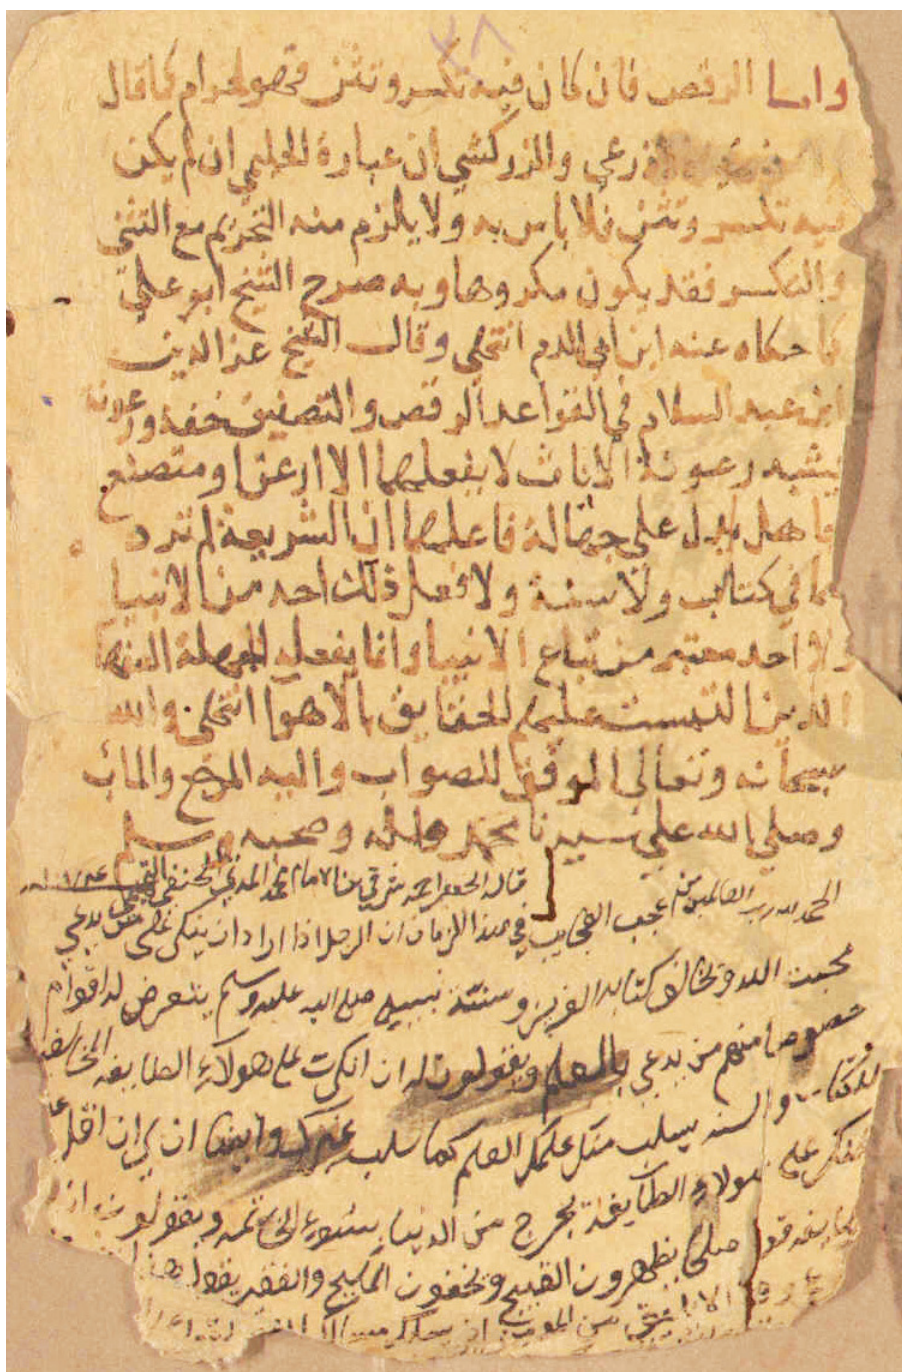 ٣٨
واما الرقص فان كان فيه تكسر وتثن فهو لحرام كما قال
والزركشي ان عبارة الحليمي ان لم يكن
فيه تكسر وتثن فلا باس به ولا يلزم منه التحريم مع التثني
والتكسر فقد يكون مكروها وبه صرح الشيخ ابو علي
كما حكاه عنه ابن ابي الدم انتهى وقال الشيخ عز الدين
ابن عبد السلام في القواعد الرقص والتصفيق خفه ورعونه
يشبه رعونة الاناث لا يفعلهما الا ارعن او متصنع
جاهل يدل على جهالة فاعلهما ان الشريعة لم ترد
بهما في كتاب ولا سنة ولا فعل ذلك احد من الانبيا
ولا احد معتبر من تباع الانبيا وانما يفعله الجهلة السفها
الذين التبست عليهم الحقايق بالاهوا انتهى والله
سبحانه وتعالى الموفق للصواب واليه المرجع والمآب
وصلى الله على سيدنا محمد واله وصحبه وسلم
قاله الحقير احمد الامام محمد المدني الحنفي
الحمد لله رب العالمين من عجب العجايب في هذا الزمان ان الرجل اذا اراد ان ينكر على من يدعي
محبت الله ويخالف كتابه العزيز وسنة نبيه صلى الله عليه وسلم يتعرض له اقوام
خصوصا منهم من يدعي بالعلم ويقولون له ان انكرت على هولاء الطايفه المخالفه
للكتاب والسنه يسلب منك علمك العلم كما سلب غيرك وايضا ان لي ان اقل
منكر على هولاء الطايفة يخرج من الدنيا بسوء الخاتمه ويقولون ان
يظهرون القبيح ويخفون المليح والفقير يقول هذا